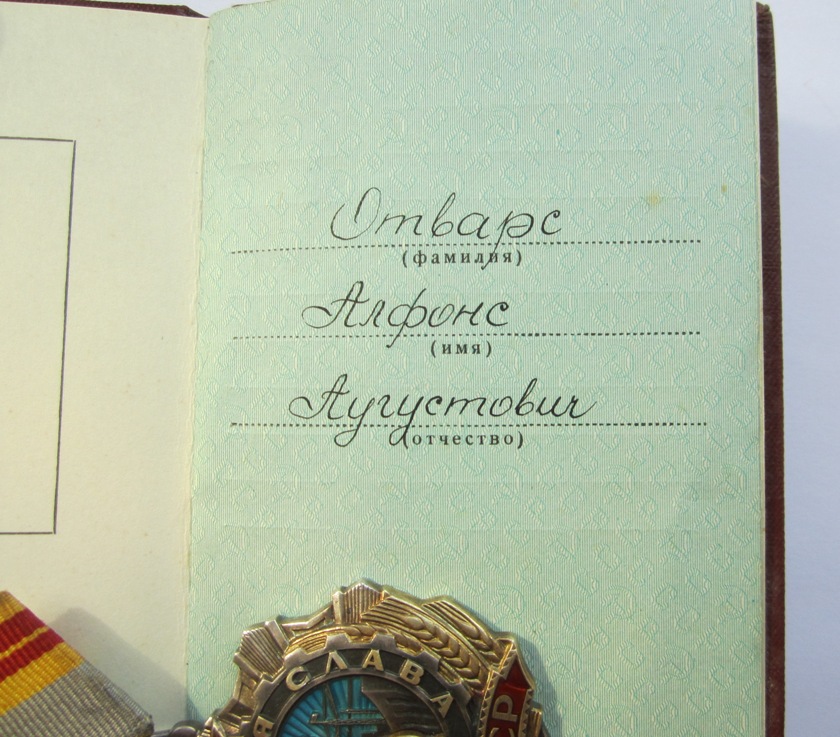 Отварс
(фамилия)
Алфонс
(имя)
Аугустович
(отчество)
Я СЛАВА
СР